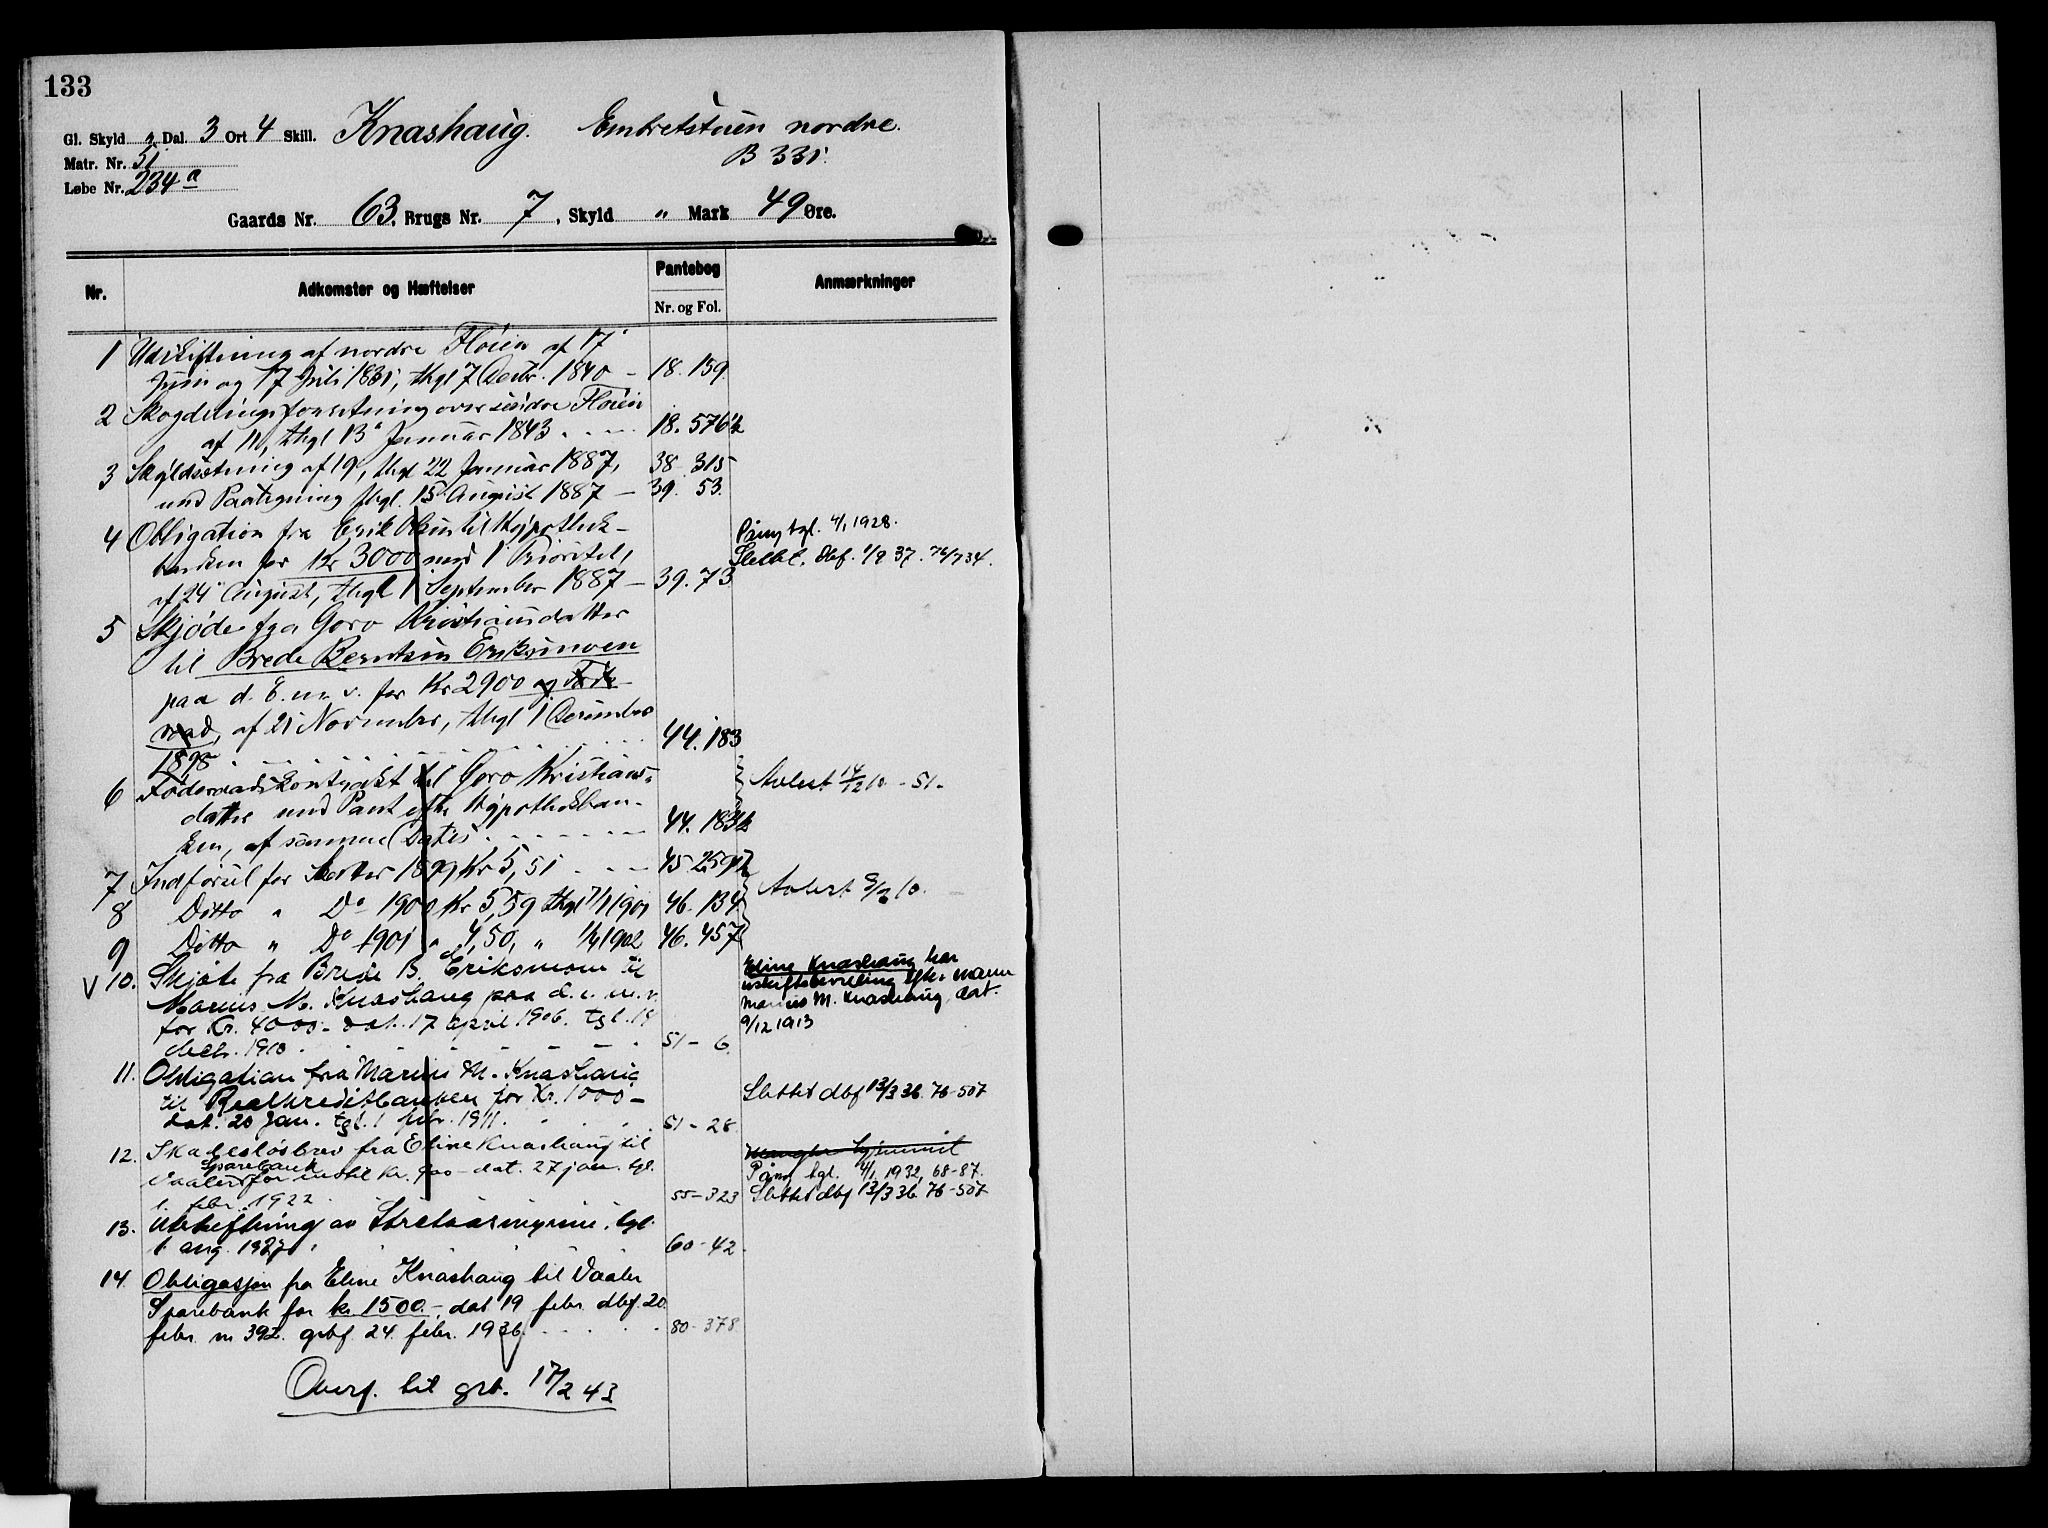 133
Gl. Skyld „ Dal. 3 Ort 4 Skill. Knashaug. Embretstuen nordre.
Matr. Nr. 51 B 331.
Løbe Nr. 234 a
Gaards Nr. 63, Brugs Nr. 7, Skyld „ Mark 49 Øre.
Nr. Adkomster og Hæftelser Pantebog Anmærkninger
Nr. og Fol.
1 Udskiftning af nordre Fløien af 17
Juni og 17 Juli 1831, thgl 7 Decbr. 1840 – 18. 159.
2 Skogdelingsforretning over søndre Fløien
af 11, thgl 13 Januar 1843 18. 576
3 Skyldsætning af 19, thgl 22 Januar 1887, 38. 315
med Paategning thgl. 15 August 1887 – 39. 53.
4 Obligation fra Erik Olsen til Hypothek- Påny tgl. 4/1 1928.
banken for Kr 3000 med 1 Prioritet, Slettet. dbf. 1/9 37. 76/734.
af 24 August, thgl 1 September 1887 – 39. 73
5 Skjøde fra Goro Kristiansdatter
til Brede Berntsen Eriksmoen
paa d. E. m. v. for Kr 2900 og Føde-
raad, af 21 November, thgl 1 December
1898 44. 183
6 Føderaadskontrakt til Goro Kristians- Avlest 14/12 10 - 51.
datter med Pant efter Hypothekban-
ken, af samme Datis 44. 183
7 Indførsel for Skatter 1899 Kr 5,51 45 259
8 Ditto „ Do 1900 Kr 5,59 thgl 7/1 1901 46. 134 Avlest
9 Ditto „ Do 1901 „ 4,50, „ 1902 46. 457
V 10. Skjøte fra Brede B. Eriksmoen til Eline Knashaug har
Marius M. Knashaug paa d. e. m. v. uskiftebevilling efter mann
for Kr. 4000.- dat. 17 april 1906. tgl. 14 Marius M. Knashaug, dat.
decbr. 1910 51 – 6. 9/12 1913
11. Obligation fra Marius M. Knashaug
til Realkreditbanken for Kr. 1000 – Slettet dbf 13/3 36. 76-507
dat. 20 Jan. tgl. 1 febr. 1911. 51 – 28.
12. Skadesløsbrev fra Eline Knashaug til Mangler hjemmel
Vaaler Sparebank for indtil kr. 900 – dat. 27 jan. tgl. Påny tgl. 4/1 1932, 68-87.
1. febr. 1922 55 – 323 Slettet dbf 13/3 36. 76-507
13. Utskiftning av Stretaasmyrene. tgl.
1. aug. 1927 60 - 42.
14. Obligasjon fra Eline Knashaug til Vaaler
Sparebank for kr. 1500.-, dat 19 febr. dbf. 20.
febr. nr 392. grbf. 24. febr. 1936 80 - 378
Overf. til grb. 17/2 43